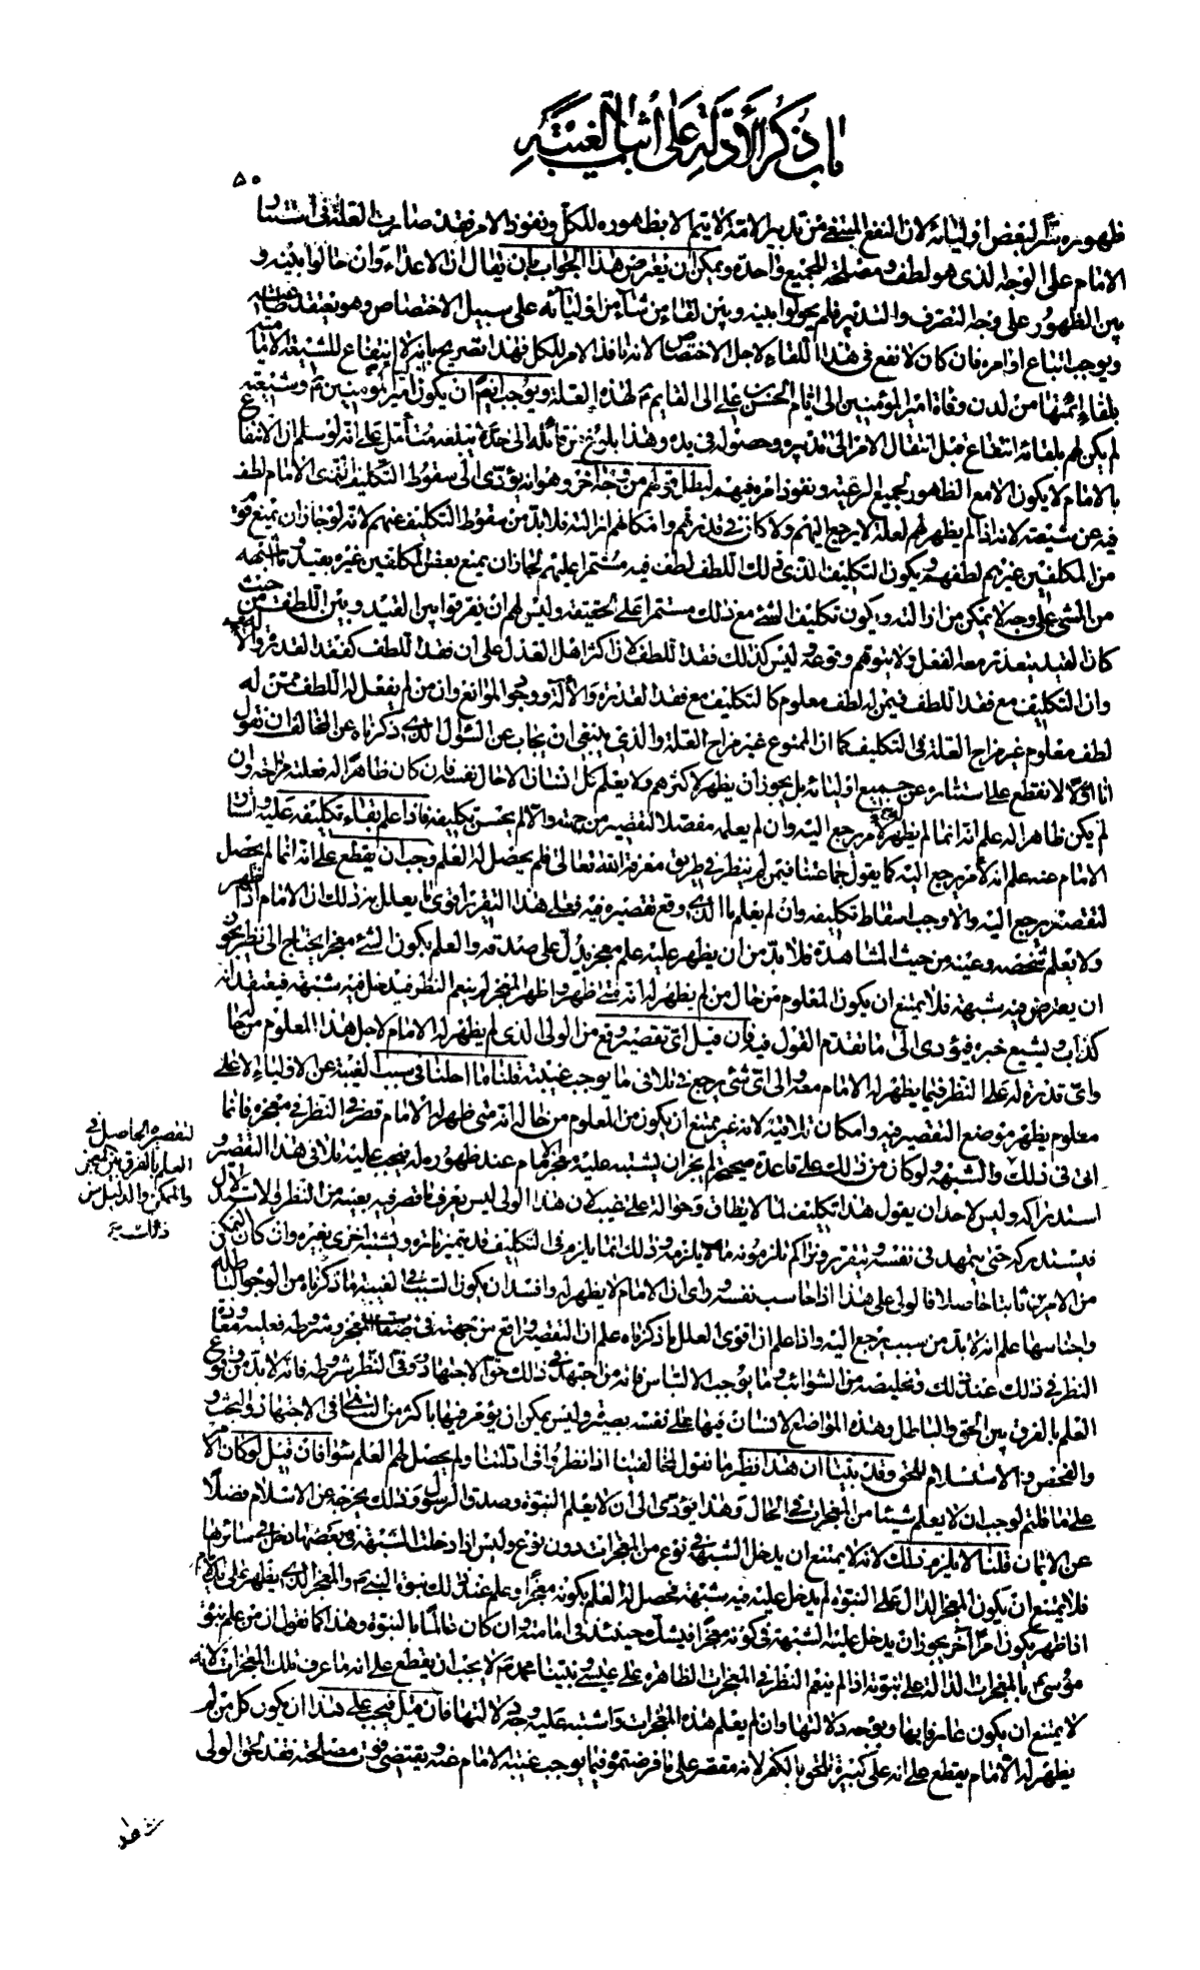 باب ذكر الأدلة على اثبات الغيبة
٥٠
ظهوره سرا لبعض اوليائه لان النفع المبتغى من تدبير الامة لا يتم الا بظهوره للكل ونفوذ الامر فقد صارت العلة فى استتار
الامام على الوجه الذى هو لطف ومصلحة للجميع واحدة ويمكن ان يعترض هذا الجواب بان يقال ان الاعداء وان حالوا بينه و
بين الظهور على وجه التصرف والتدبير فلم يحولوا بينه وبين لقاء من شاء من اوليائه على سبيل الاختصاص وهو يعتقد طاعته
ويوجب اتباع اوامره فان كان لا نفع فى هذا اللقاء لاجل الاختصاص لانه نافذ الامر للكل فهذا تصريح بانه لا انتفاع للشيعة الامامية
بلقاء ائمتها من لدن وفاة امير المؤمنين الى ايام الحسن بن على الى القايم م لهذه العلة ويوجب ايضا ان يكون امير المؤمنين م وشيعته
لم يكن لهم بلقائه انتفاع قبل انتقال الامر الى تدبيره وحصوله فى يده وهذا بلوغ من قائله الى حد لا يبلغه متأمل على انه لو سلم ان الانتفاع
بالامام لا يكون الا مع الظهور لجميع الرعية ونفوذ امره فيهم لبطل قولهم من وجه اخر وهو انه يؤدى الى سقوط التكليف الذى الامام لطف
فيه عن شيعته لانه اذا لم يظهر لهم لعلة لا يرجع اليهم ولا كان فى قدرتهم وامكانهم ازالته فلا بد من سقوط التكليف عنهم لانه لو جاز ان يمنع قوم
من المكلفين غيرهم لطفهم ويكون التكليف الذى ذلك اللطف لطف فيه مستمرا عليهم لجاز ان يمنع بعض المكلفين غيره بقيد وما اشبهه
من المشى على وجه لا يمكن من ازالته ويكون تكليف المشى مع ذلك مستمرا على الحقيقة وليس لهم ان يفرقوا بين القيد وبين اللطف من حيث
كان القيد يتعذر معه الفعل ولا يتوهم وقوعه وليس كذلك فقد اللطف لان اكثر اهل العدل على ان فقد اللطف كفقد القدرة والالة
وان التكليف مع فقد اللطف فيمن له لطف معلوم كالتكليف مع فقد القدرة والالة ووجود الموانع وان من لم يفعل له اللطف ممن له
لطف معلوم غير مزاح العلة فى التكليف كما ان الممنوع غير مزاح العلة والذى ينبغى ان يجاب عن السؤال الذى ذكرناه عن المخالف ان نقول
انا اولا لا نقطع على استتاره عن جميع اوليائه بل يجوز ان يظهر لاكثرهم ولا يعلم كل انسان الا حال نفسه فان كان ظاهرا له فعلته مزاحة وان
لم يكن ظاهرا له علم انه انما لم يظهر له لامر يرجع اليه وان لم يعلمه مفصلا لتقصير من جهته والا لم يحسن تكليفه فاذا علم بقاء تكليفه عليه واستتار
الامام عنه علم انه لامر يرجع اليه كما يقول جماعتنا فيمن لم ينظر فى طريق معرفة الله تعالى فلم يحصل له العلم وجب ان يقطع على انه انما لم يحصل
لتقصير يرجع اليه والا وجب اسقاط تكليفه وان لم يعلم ما الذى وقع تقصيره فيه فعلى هذا التقرير اقوى ما يعلل به ذلك ان الامام اذا ظهر
ولا يعلم شخصه وعينه من حيث المشاهدة فلا بد من ان يظهر عليه علم معجز يدل على صدقه والعلم بكون الشئ معجزا يحتاج الى نظر يجوز
ان يعترض فيه شبهة فلا يمتنع ان يكون المعلوم من حال من لم يظهر له انه متى ظهر واظهر المعجز لم ينعم النظر فيدخل فيه شبهة فيعتقد انه
كذاب ويشيع خبره فيؤدى الى ما تقدم القول فيه فان قيل اى تقصير وقع من الولى الذى لم يظهر له الامام لاجل هذا المعلوم من حاله
واى قدرة له على النظر فيما يظهر له الامام معه والى اى شئ يرجع فى تلافى ما يوجب غيبته قلنا ما احلنا فى سبب الغيبة عن الاولياء الا على
معلوم يظهر موضع التقصير فيه وامكان تلافيه لانه غير ممتنع ان يكون من المعلوم من حاله انه متى ظهر له الامام قصر فى النظر فى معجزه فانما
اتى فى ذلك والشبهة ولو كان من ذلك على قاعدة صحيحة لم يجز ان يشتبه عليه معجز الامام عند ظهوره له فيجب عليه تلافى هذا التقصير و
لتقصيره الحاصل فى
العلم بالفرق بين المعجز
والممكن والدليل من
ذلك
استدراكه وليس لاحد ان يقول هذا تكليف لما لا يطاق وحوالة على غيب لان هذا الولى ليس يعرف ما قصر فيه بعينه من النظر والاستدلال
فيستدركه حتى يتمهد فى نفسه ويتقرر ونراكم تلزمونه ما لا يلزمه وذلك انما يلزم فى التكليف قد يتميز تارة ويشتبه اخرى بغيره وان كان التمكن
من الامرين ثابتا حاصلا فالولى على هذا اذا حاسب نفسه وراى ان الامام لا يظهر له وافسد ان يكون السبب فى الغيبة ما ذكرناه من الوجوه الباطلة
واجناسها علم انه لا بد من سبب يرجع اليه واذا علم ان اقوى العلل ما ذكرناه علم ان التقصير واقع من جهته فى صفات المعجز وشروطه فعليه معاودة
النظر فى ذلك عند ذلك وتخليصه من الشوائب وما يوجب الالتباس فانه من اجتهد فى ذلك حق الاجتهاد ووفى النظر شروطه فانه لا بد من وقوع
العلم بالفرق بين الحق والباطل وهذه المواضع الانسان فيها على نفسه بصيرة وليس يمكن ان يؤمر فيها باكثر من التناهى فى الاجتهاد والبحث
والفحص والاستسلام للحق وقد بينا ان هذا نظير ما نقول لمخالفينا اذا نظروا فى ادلتنا ولم يحصل لهم العلم سواء فان قيل لو كان الامر
على ما قلتم لوجب ان لا يعلم شيئا من المعجزات فى الحال وهذا يؤدى الى ان لا يعلم النبوة وصدق الرسول وذلك يخرجه عن الاسلام فضلا
عن الايمان قلنا لا يلزم ذلك لانه لا يمتنع ان يدخل الشبهة فى نوع من المعجزات دون نوع وليس اذا دخلت الشبهة فى بعضها دخل فى سائرها
فلا يمتنع ان يكون المعجز الدال على النبوة لم يدخل عليه فيه شبهة فحصل له العلم بكونه معجزا وعلم عند ذلك نبوة النبى م والمعجز الذى يظهر على يد الامام
اذا ظهر يكون امرا آخر يجوز ان يدخل عليه الشبهة فى كونه معجزا فيشك حينئذ فى امامته وان كان عالما بالنبوة وهذا كما نقول ان من علم نبوة
موسى م بالمعجزات الدالة على نبوته اذا لم ينعم النظر فى المعجزات الظاهرة على عيسى ونبينا محمد م لا يجب ان يقطع على انه ما عرف تلك المعجزات لانه
لا يمتنع ان يكون عارفا بها وبوجه دلالتها وان لم يعلم هذه المعجزات واشتبه عليه وجه دلالتها فان قيل فيجب على هذا ان يكون كل من لم
يظهر له الامام يقطع على انه على كبيرة تلحق بالكفر لانه مقصر على ما فرضتموه فيما يوجب غيبة الامام عنه ويقتضى فوت مصلحته فقد لحق الولى